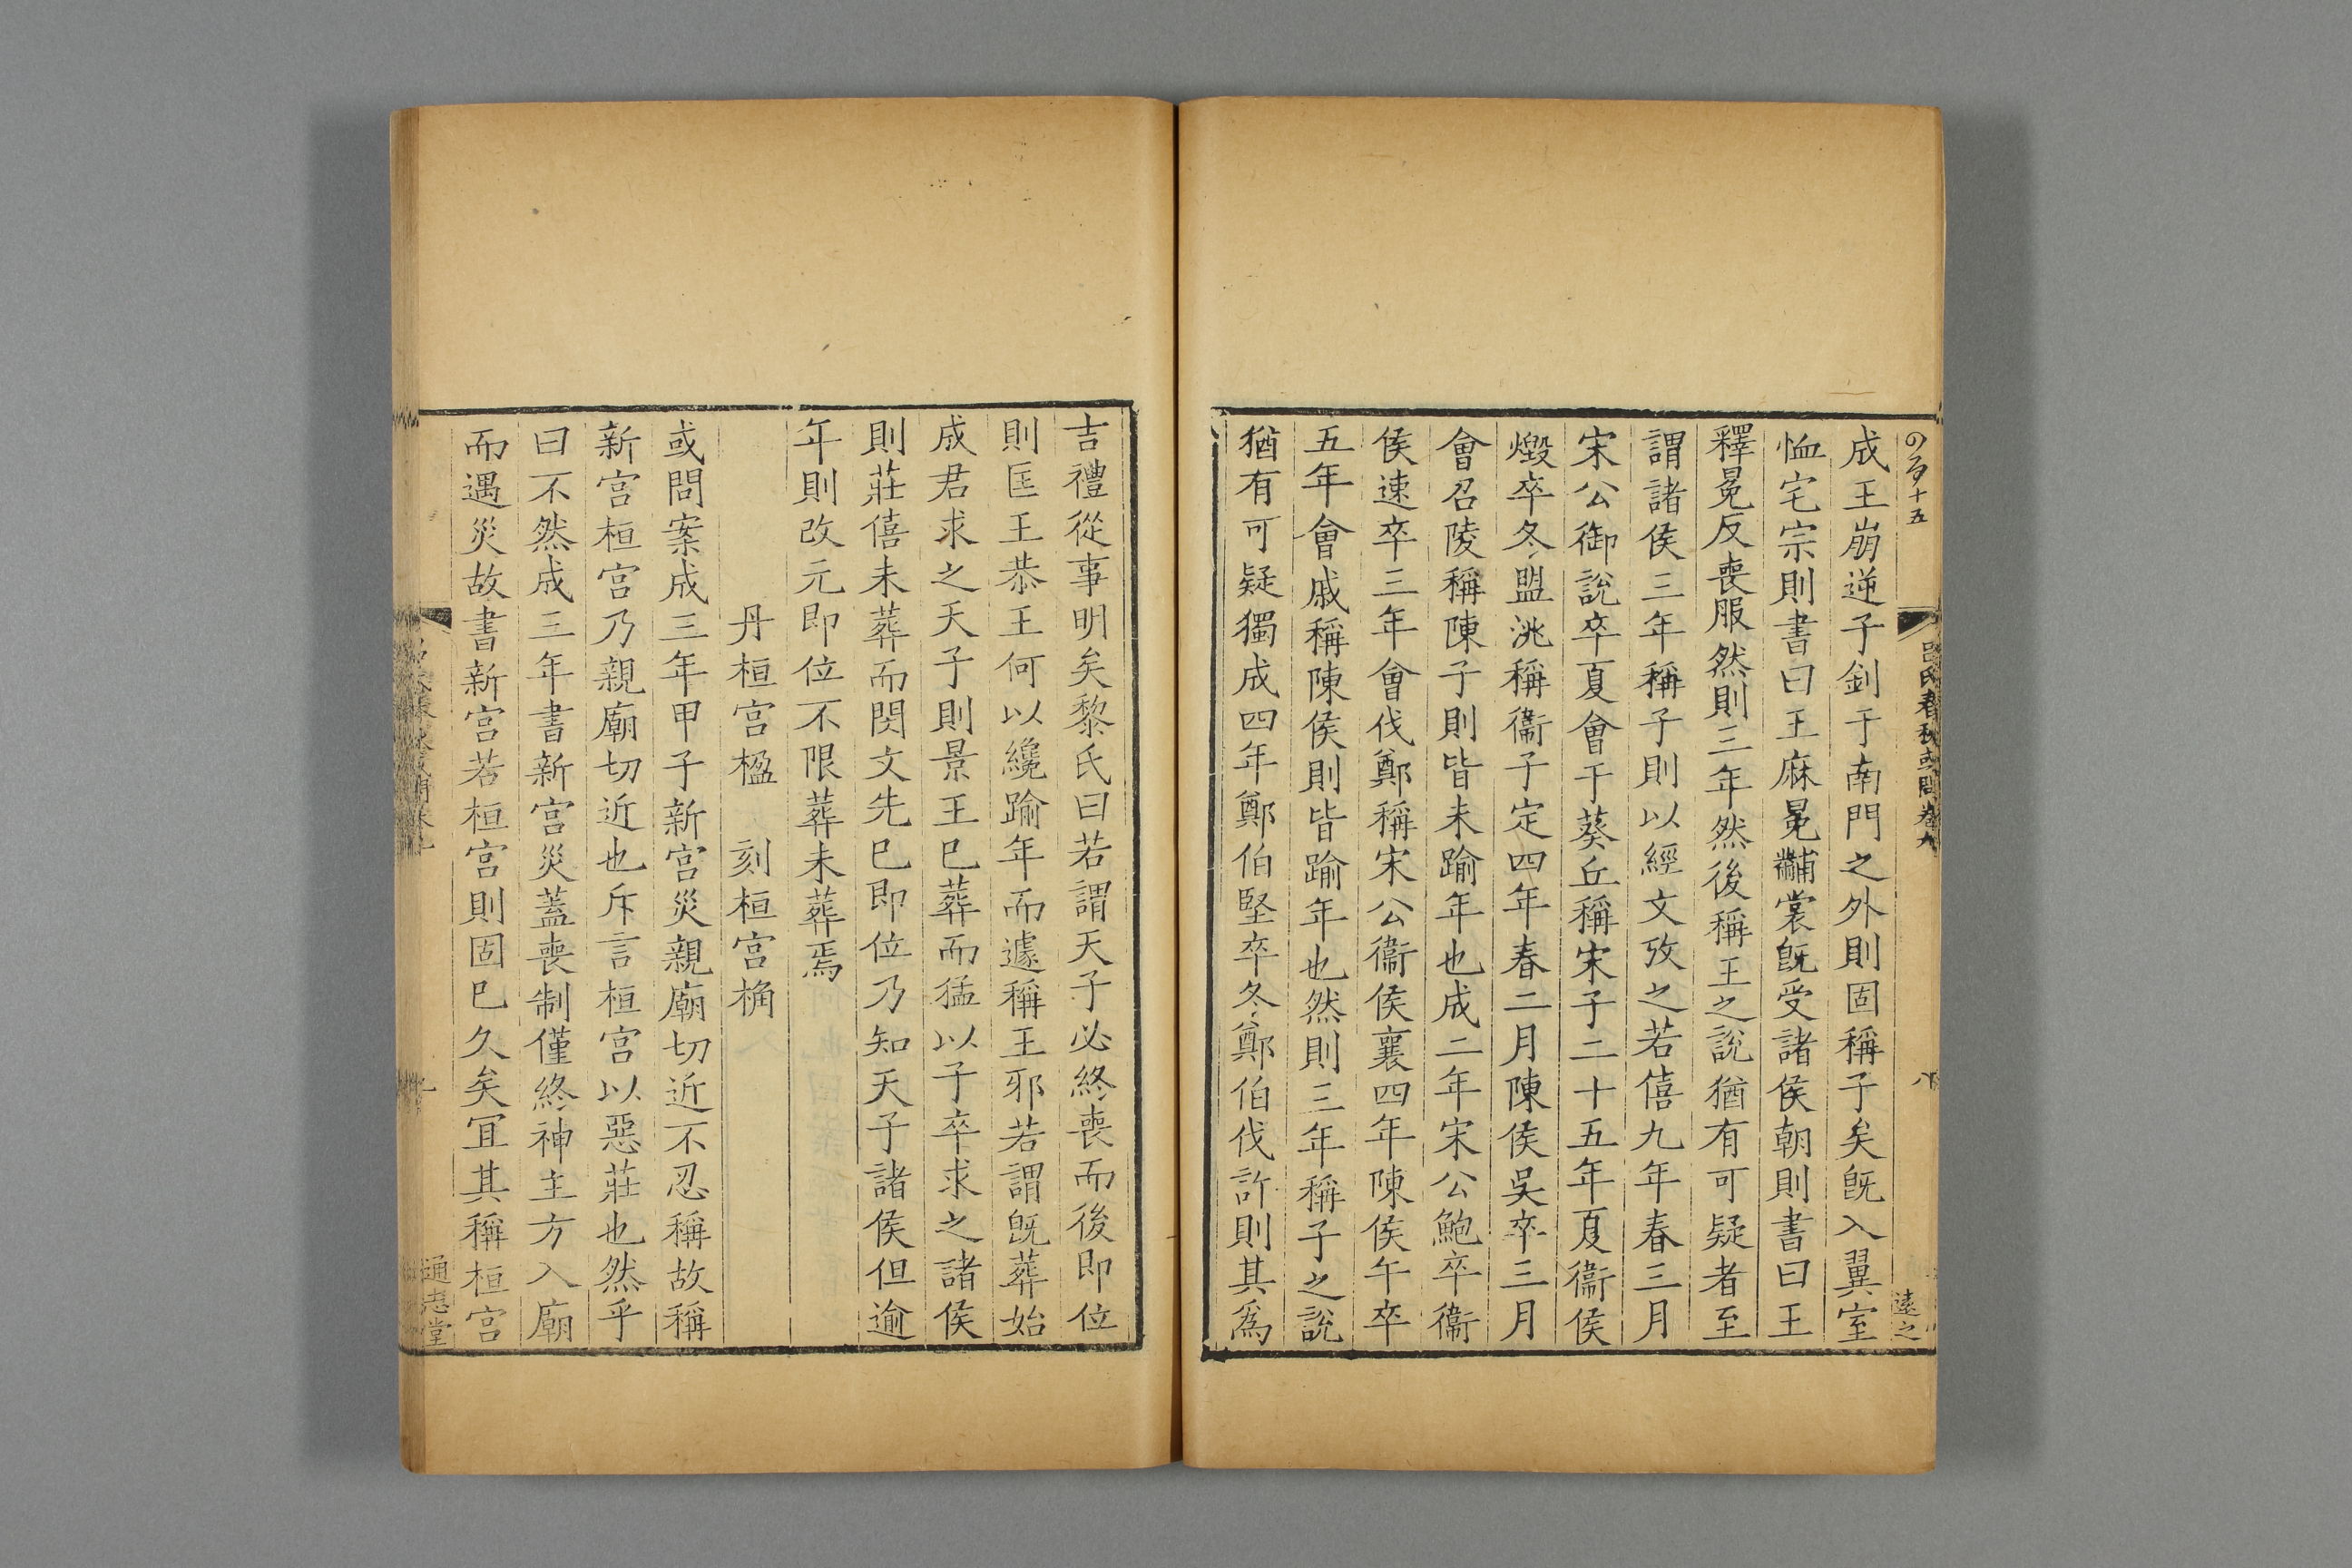 成王崩逆子釗于南門之外則固稱子矣旣入翼室
恤宅宗則書曰王麻冕黼裳旣受諸侯朝則書曰王
釋冕反喪服然則三年然後稱王之說猶有可疑者至
謂諸侯三年稱子則以經文攷之若僖九年春三月
宋公御說卒夏會于葵丘稱宋子二十五年夏衞侯
燬卒冬盟洮稱衞子定四年春二月陳侯吳卒三月
會召陵稱陳子則皆未踰年也成二年宋公鮑卒衞
侯速卒三年會伐鄭稱宋公衞侯襄四年陳侯午卒
五年會戚稱陳侯則皆踰年也然則三年稱子之說
猶有可疑獨成四年鄭伯堅卒冬鄭伯伐許則其爲
吉禮從事明矣黎氏曰若謂天子必終喪而後即位
則匡王恭王何以纔踰年而遽稱王邪若謂旣葬始
成君求之天子則景王巳葬而猛以子卒求之諸侯
則莊僖未葬而閔文先巳即位乃知天子諸侯但逾
年則改元即位不限葬未葬焉
丹桓宮楹 刻桓宮桷
或問案成三年甲子新宮災親廟切近不忍稱故稱
新宮桓宮乃親廟切近也斥言桓宮以惡莊也然乎
曰不然成三年書新宮災蓋喪制僅終神主方入廟
而遇災故書新宮若桓宮則固巳久矣冝其稱桓宮
吕氏春秋或問卷九
八
遠之
通志堂